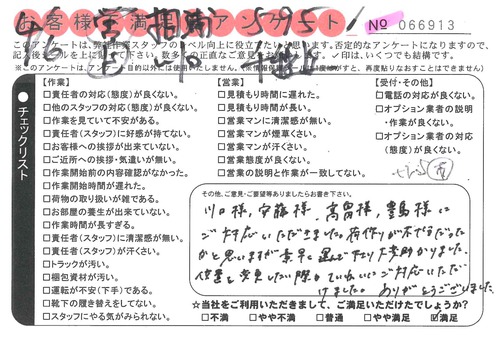 お客様 満足 アンケート
№ 066913
このアンケートは、弊社作業スタッフのレベル向上に役立てたいと思います。否定的なアンケートになりますので、
記入後シールを上に 下さい。数多く 正直なご意見を 。✓印は、いくつでも結構です。
【作業】
□責任者の対応(態度)が良くない。
□他のスタッフの対応(態度)が良くない。
□作業を見ていて不安がある。
□責任者(スタッフ)に好感が持てない。
□お客様への挨拶が出来ていない。
□ご近所への挨拶・気遣いが無い。
□作業開始前の内容確認がなかった。
□作業開始時間が遅れた。
□荷物の取り扱いが雑である。
□お部屋の養生が出来ていない。
□作業時間が長すぎる。
□責任者(スタッフ)に清潔感が無い。
□責任者(スタッフ)が汗くさい。
□トラックが汚い。
□梱包資材が汚い。
□運転が不安(下手)である。
□靴下の履き替えをしてない。
□スタッフにやる気がみられない。
【営業】
□見積もり時間に遅れた。
□見積もり時間が長い。
□営業マンに清潔感が無い。
□営業マンが煙草くさい。
□営業マンが汗くさい。
□営業態度が良くない。
□営業の説明と作業が一致してない。
【受付・その他】
□電話の対応が良くない。
□オプション業者の説明
・作業が良くない。
□オプション業者の対応
(態度)が良くない。
●チェックリスト
その他、ご意見・ご要望等ありましたらお書き下さい。
川口様, 安藤様, 様, 豊島様に
ご対応いただきました。荷作りが不十分だった
かと思いますが 運んで下さり大変助かりました。
位置を変更したい際もていねいにご対応いただ
けました。ありがとうございました。
☆当社をご利用いただきまして、ご満足いただけたでしょうか?
□不満 □やや不満 □普通 □やや満足 ☑満足